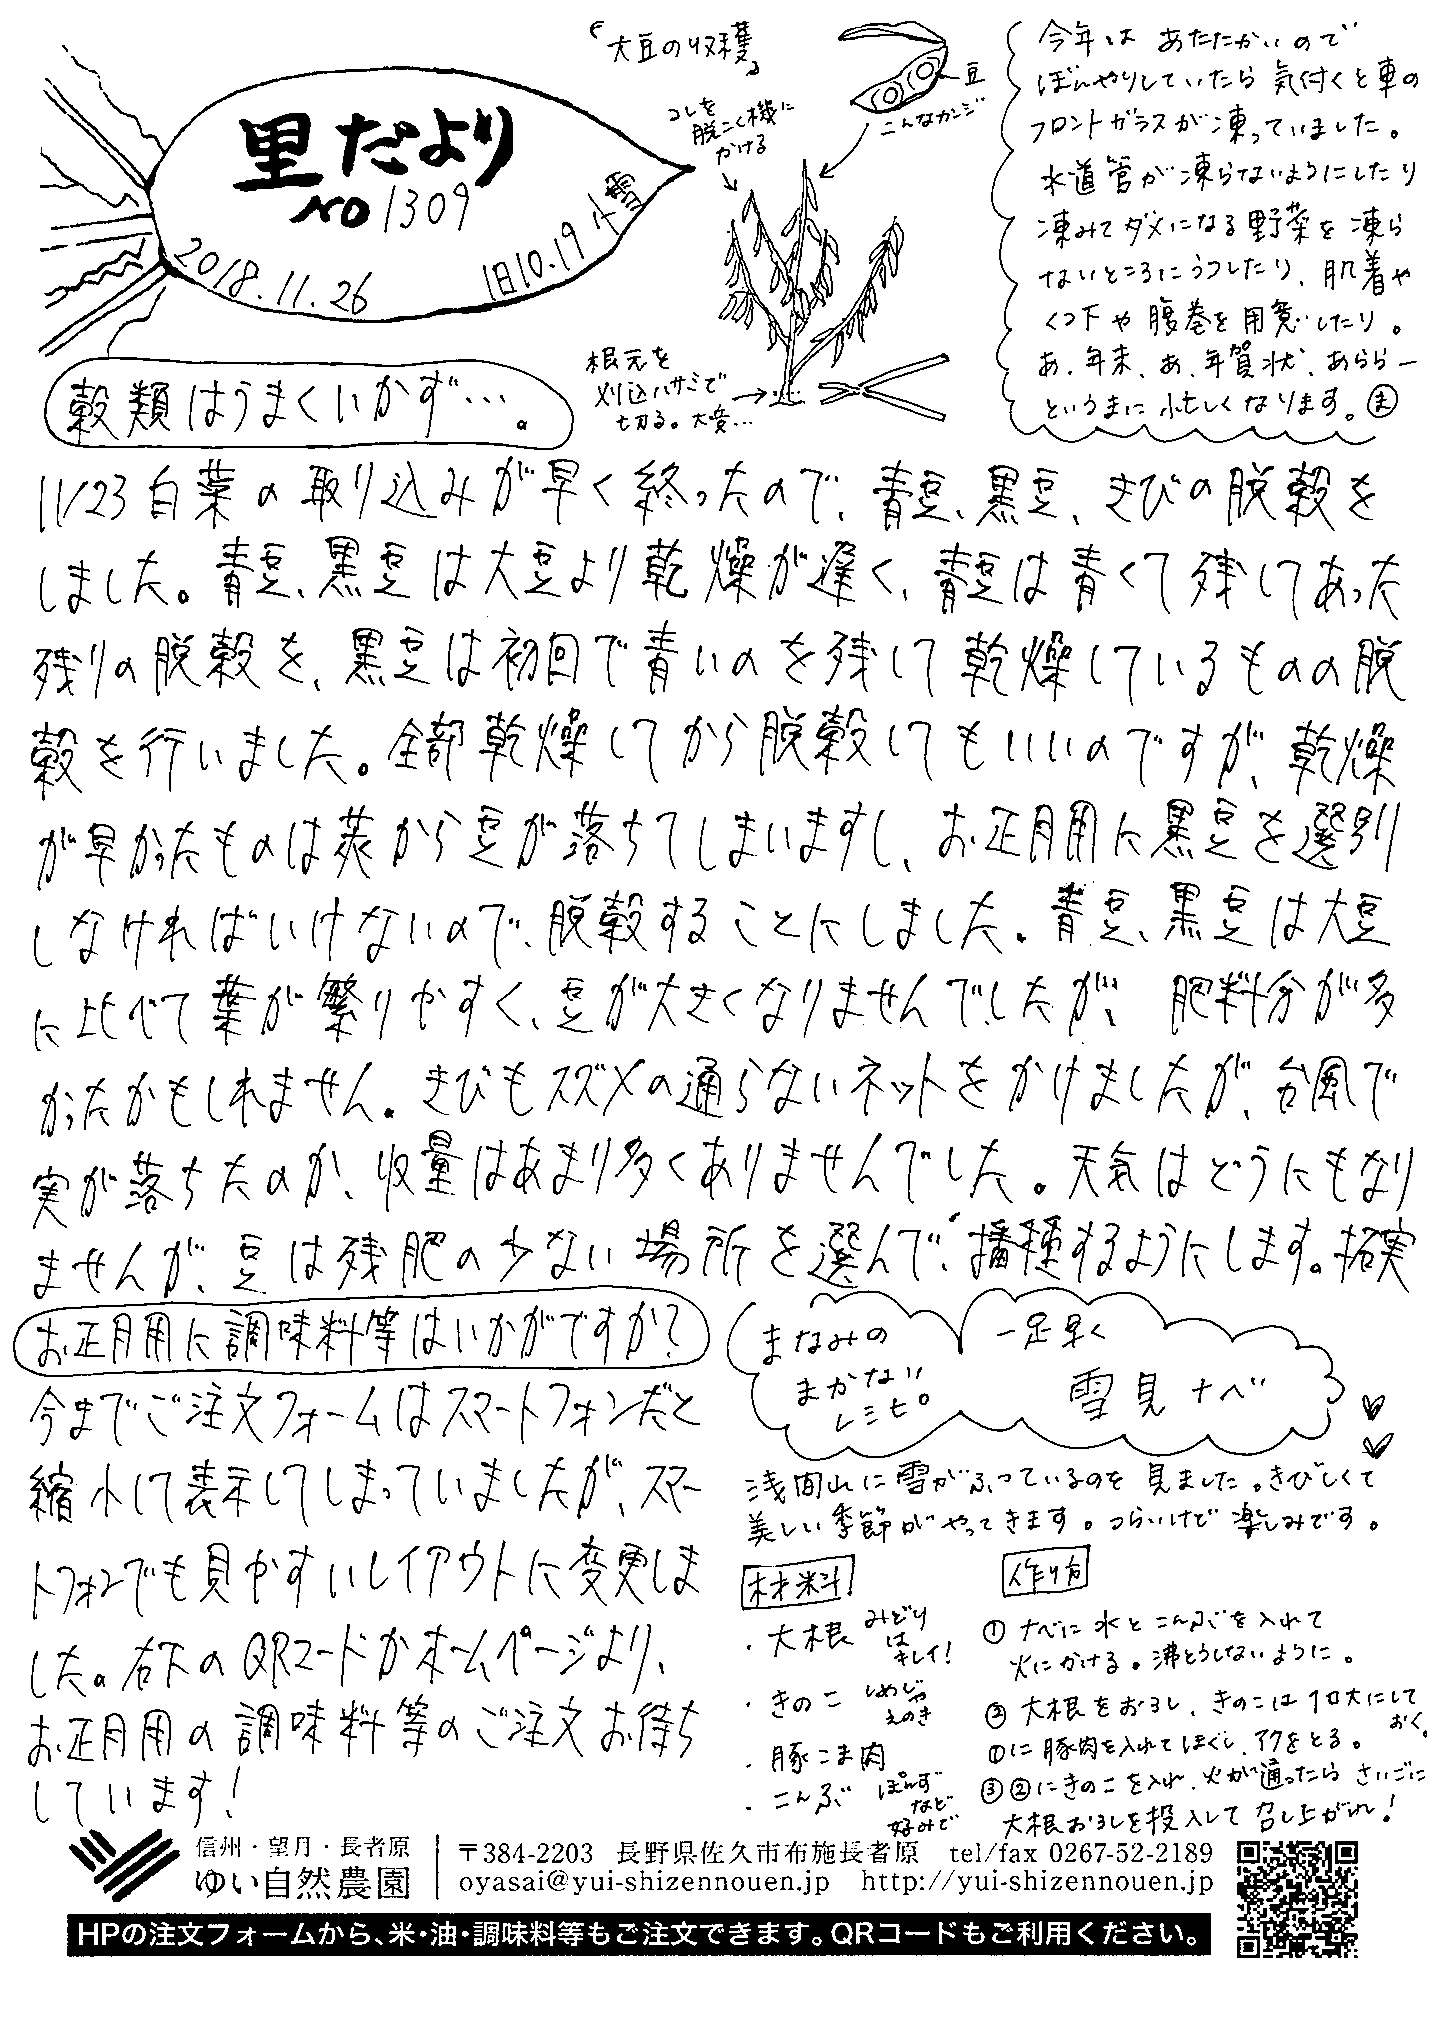 里だより
NO 1309
2018.11.26
旧10.19 小雪
『大豆の収穫』
豆
こんなカンジ
コレを
脱こく機に
かける
根元を
刈込ハサミで
切る。大変…
今年は あたたかいので
ぼんやりしていたら 気付くと車の
フロントガラスが凍っていました。
水道管が凍らないようにしたり
凍みてダメになる野菜を凍ら
ないところにうつしたり、肌着や
くつ下や腹巻を用意したり。
あ、年末、あ、年賀状、あららー
というまに忙しくなります。ま
穀類はうまくいかず…。
11/23 白菜の取り込みが早く終ったので、青豆、黒豆、きびの脱穀を
しました。青豆、黒豆は大豆より乾燥が遅く、青豆は青くて残してあった
残りの脱穀を、黒豆は初回で青いのを残して乾燥しているものの脱
穀を行いました。全部乾燥してから脱穀してもいいのですが、乾燥
が早かったものは莢から豆が落ちてしまいますし、お正月用に黒豆を選別
しなければいけないので、脱穀することにしました。青豆、黒豆は大豆
に比べて葉が繁りやすく、豆が大きくなりませんでしたが、肥料分が多
かったかもしれません。きびもスズメの通らないネットをかけましたが、台風で
実が落ちたのか、収量はあまり多くありませんでした。天気はどうにもなり
ませんが、豆は残肥の少ない場所を選んで、播種するようにします。拓実
お正月用に調味料等はいかがですか？
今までご注文フォームはスマートフォンだと
縮小して表示してしまっていましたが、スマー
トフォンでも見やすいレイアウトに変更しま
した。右下のQRコードかホームページより、
お正月用の調味料等のご注文お待ち
しています！
まなみの
まかない
レシピ。
一足早く
雪見ナベ
浅間山に雪がふっているのを見ました。きびしくて
美しい季節がやってきます。つらいけど楽しみです。
材料
・大根 みどり
は
キレイ！
・きのこ しめじや
えのき
・豚こま肉
・こんぶ ぽんず
など
好みで
作り方
① ナベに水とこんぶを入れて
火にかける。沸とうしないように。
② 大根をおろし、きのこは1口大にして
おく。
①に豚肉を入れてほぐし、アクをとる。
③②にきのこを入れ、火が通ったらさいごに
大根おろしを投入して召し上がれ！
信州・望月・長者原
ゆい自然農園
〒384-2203 長野県佐久市布施長者原 tel/fax 0267-52-2189
oyasai@yui-shizennouen.jp http://yui-shizennouen.jp
HPの注文フォームから、米・油・調味料等もご注文できます。QRコードもご利用ください。